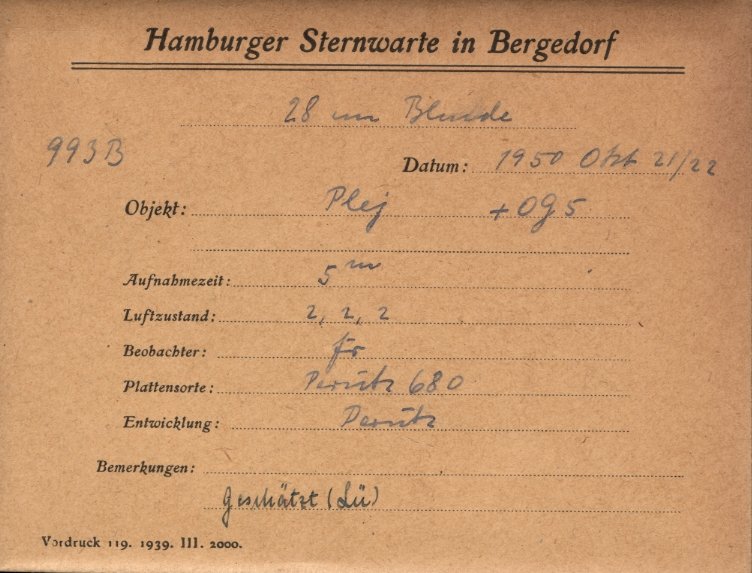 Hamburger Sternwarte in Bergedorf
28 cm Blende
993B
Datum: 1950 Okt 21/22
Objekt: Plej + OG5
Aufnahmezeit: 5 m
Luftzustand: 2, 2, 2
Beobachter: Fr
Plattensorte: Perutz 680
Entwicklung: Perutz
Bemerkungen:
Geschätzt (Lü)
Vordruck 119. 1939. III. 2000.